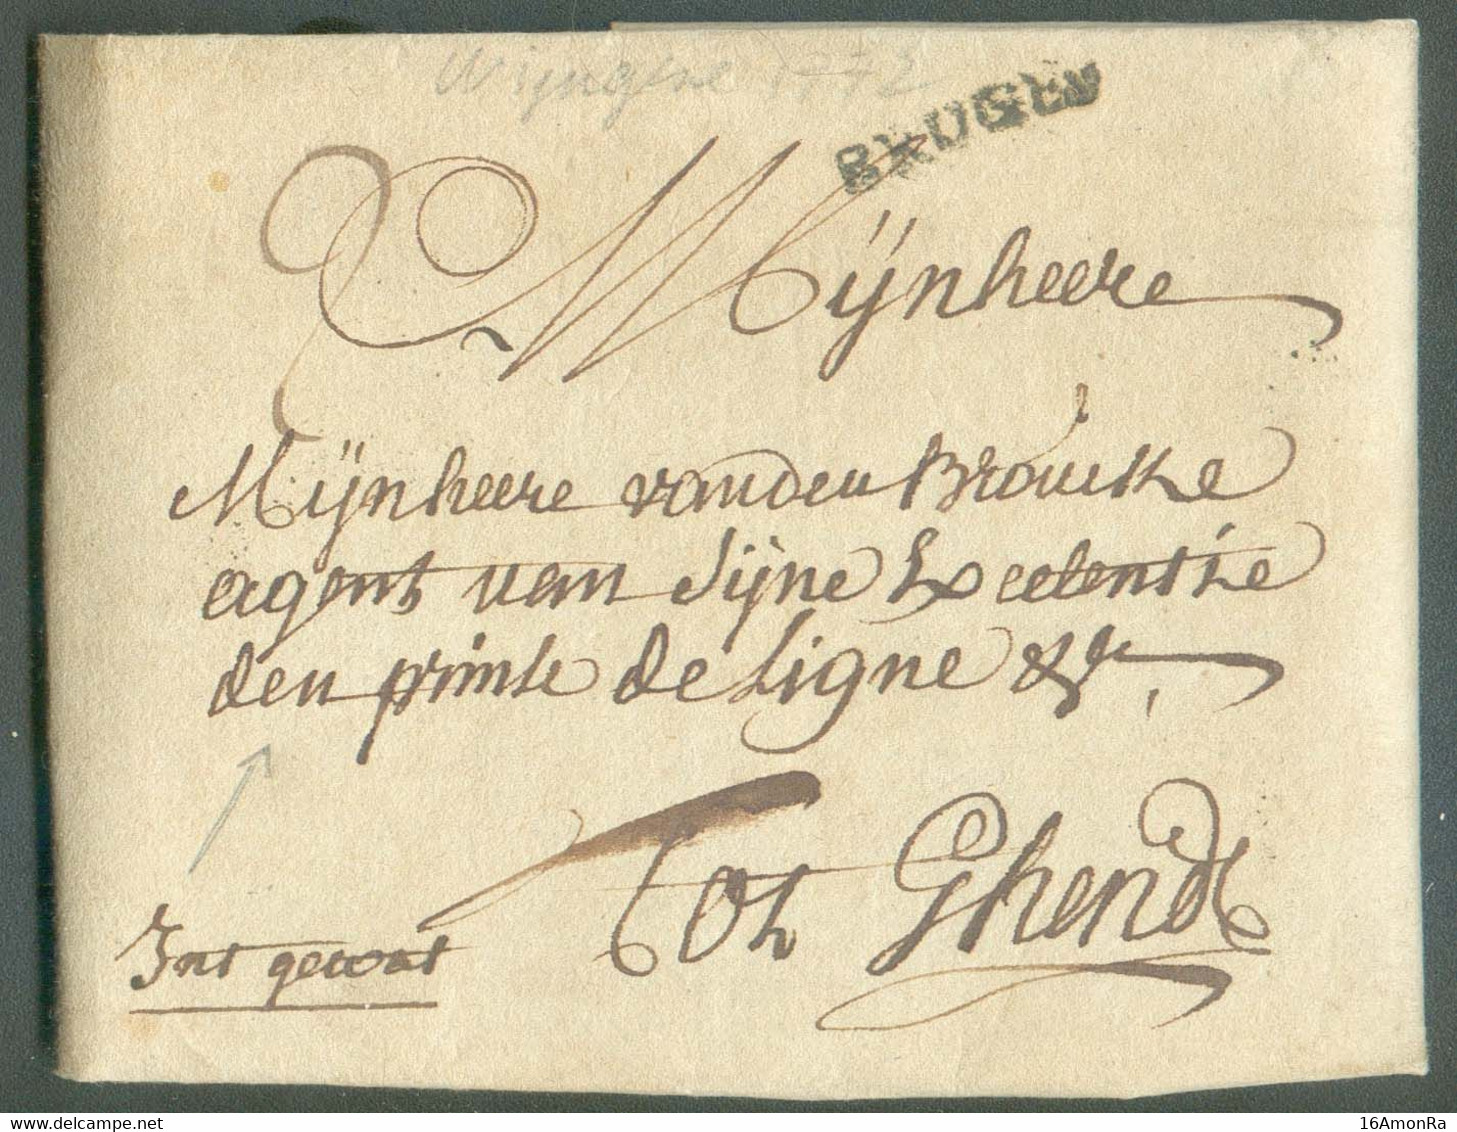 Wijnghene 1772
BRUGES
Mijnheere
Mijnheere vanden Broucke
agent van Sijne Excelentie
den prinse de Ligne &c
Tot Ghendt
Int gewat
16AmonRa